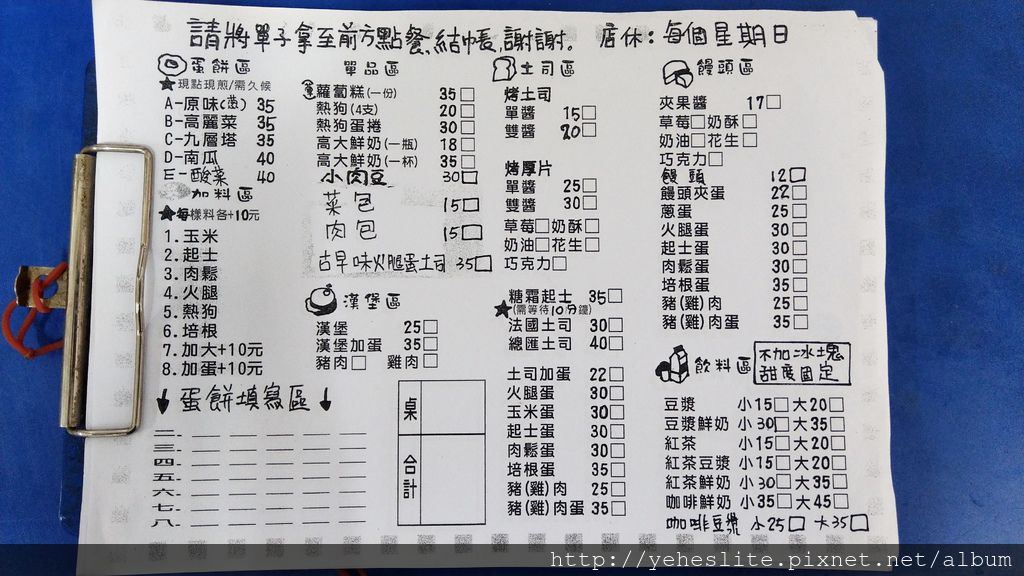 請將單子拿至前方點餐、結帳,謝謝。 店休:每個星期日
蛋餅區
★現點現煎/需久候
A-原味(蔥) 35
B-高麗菜 35
C-九層塔 35
D-南瓜 40
E-酸菜 40
加料區
★每樣料各+10元
1.玉米
2.起士
3.肉鬆
4.火腿
5.熱狗
6.培根
7.加大+10元
8.加蛋+10元
↓蛋餅填寫區↓
一
二
三
四
五
六
七
八
單品區
蘿蔔糕(一份) 35□
熱狗(4支) 20□
熱狗蛋捲 30□
高大鮮奶(一瓶) 18□
高大鮮奶(一杯) 35□
小肉豆 30□
菜包 15□
肉包 15□
古早味火腿蛋土司 35□
漢堡區
漢堡 25□
漢堡加蛋 35□
豬肉□ 雞肉□
桌
合計
土司區
烤土司
單醬 15□
雙醬 20□
烤厚片
單醬 25□
雙醬 30□
草莓□奶酥□
奶油□花生□
巧克力□
糖霜起士 35□
★(需等待10分鐘)
法國土司 30□
總匯土司 40□
土司加蛋 22□
火腿蛋 30□
玉米蛋 30□
起士蛋 30□
肉鬆蛋 30□
培根蛋 35□
豬(雞)肉 25□
豬(雞)肉蛋 35□
饅頭區
夾果醬 17□
草莓□奶酥□
奶油□花生□
巧克力□
饅頭 12□
饅頭夾蛋 22□
蔥蛋 25□
火腿蛋 30□
起士蛋 30□
肉鬆蛋 30□
培根蛋 35□
豬(雞)肉 25□
豬(雞)肉蛋 35□
飲料區
不加冰塊
甜度固定
豆漿 小15□大20□
豆漿鮮奶 小30□大35□
紅茶 小15□大20□
紅茶豆漿 小15□大20□
紅茶鮮奶 小30□大35□
咖啡鮮奶 小35□大45□
咖啡豆漿 小25□ 大35□
http://yeheslite.pixnet.net/album